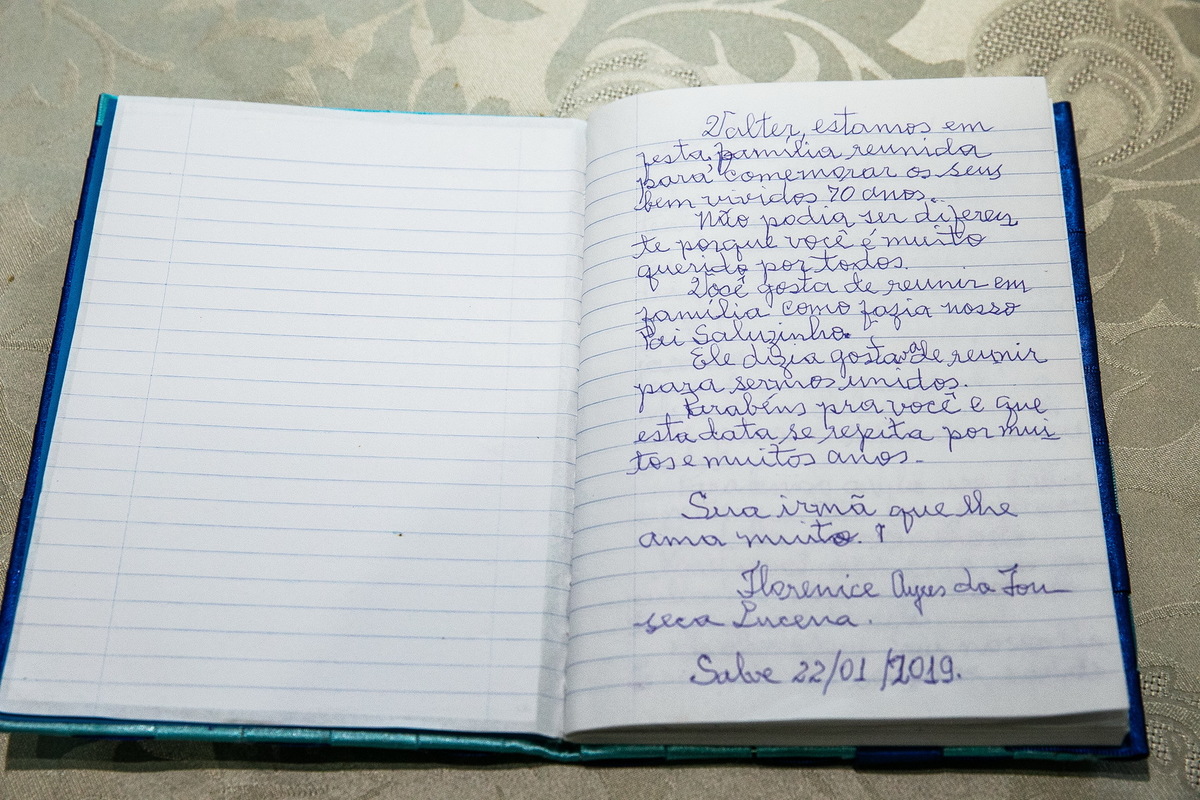 Valter, estamos em
festa, família reunida
para comemorar os seus
bem vividos 70 anos.
Não podia ser diferen
te porque você é muito
querido por todos.
Você gosta de reunir em
família como fazia nosso
Pai Saluzinho.
Ele dizia gostava de reunir
para sermos unidos.
Parabéns pra você e que
esta data se repita por mui
tos e muitos anos.
Sua irmã que lhe
ama muito.
Florenice Ayres da Fon
seca Lucena.
Salve 22/01/2019.